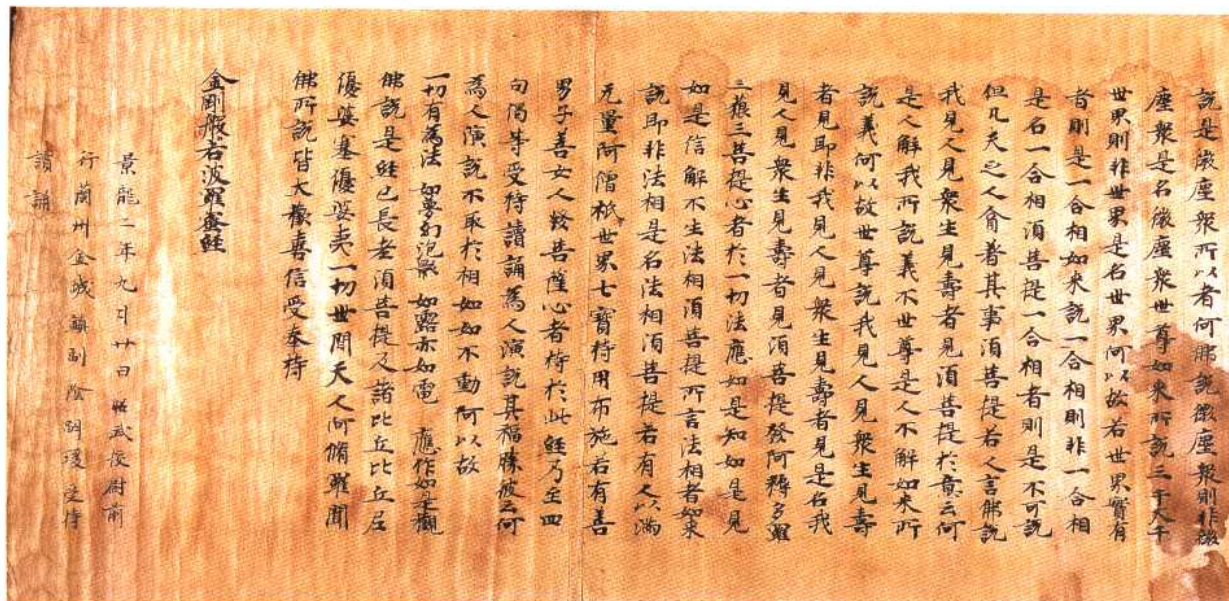 說是微塵衆所以者何佛說微塵衆則非微
塵衆是名微塵衆世尊如來所說三千大千
世界則非世界是名世界何以故若世界實有
者則是一合相如來說一合相則非一合相
是名一合相須菩提一合相者則是不可說
但凡夫之人貪著其事須菩提若人言佛說
我見人見衆生見壽者見須菩提於意云何
是人解我所說義不世尊是人不解如來所
說義何以故世尊說我見人見衆生見壽
者見即非我見人見衆生見壽者見是名我
見人見衆生見壽者見須菩提發阿耨多羅
三藐三菩提心者於一切法應如是知如是見
如是信解不生法相須菩提所言法相者如來
說即非法相是名法相須菩提若有人以滿
无量阿僧祇世界七寶持用布施若有善
男子善女人發菩薩心者持於此經乃至四
句偈等受持讀誦為人演說其福勝彼云何
為人演說不取於相如如不動何以故
一切有為法 如夢幻泡影 如露亦如電 應作如是觀
佛說是經已長老須菩提及諸比丘比丘尼
優婆塞優婆夷一切世間天人阿脩羅聞
佛所說皆大歡喜信受奉持
金剛般若波羅蜜經
景龍二年九月廿日 昭武校尉前
行蘭州金城鎮副陰嗣瑗受持
讀誦